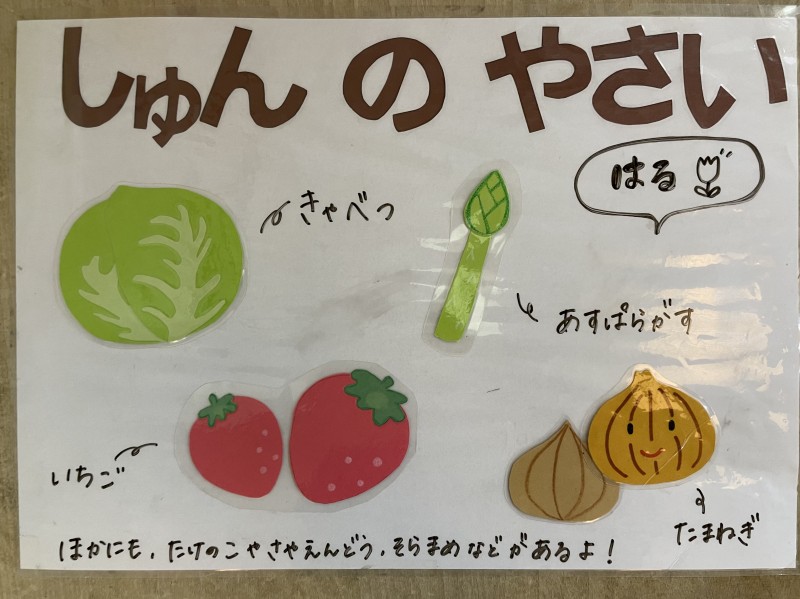 しゅん の やさい
はる
きゃべつ
あすぱらがす
いちご
たまねぎ
ほかにも、たけのこやさやえんどう、そらまめなどがあるよ!